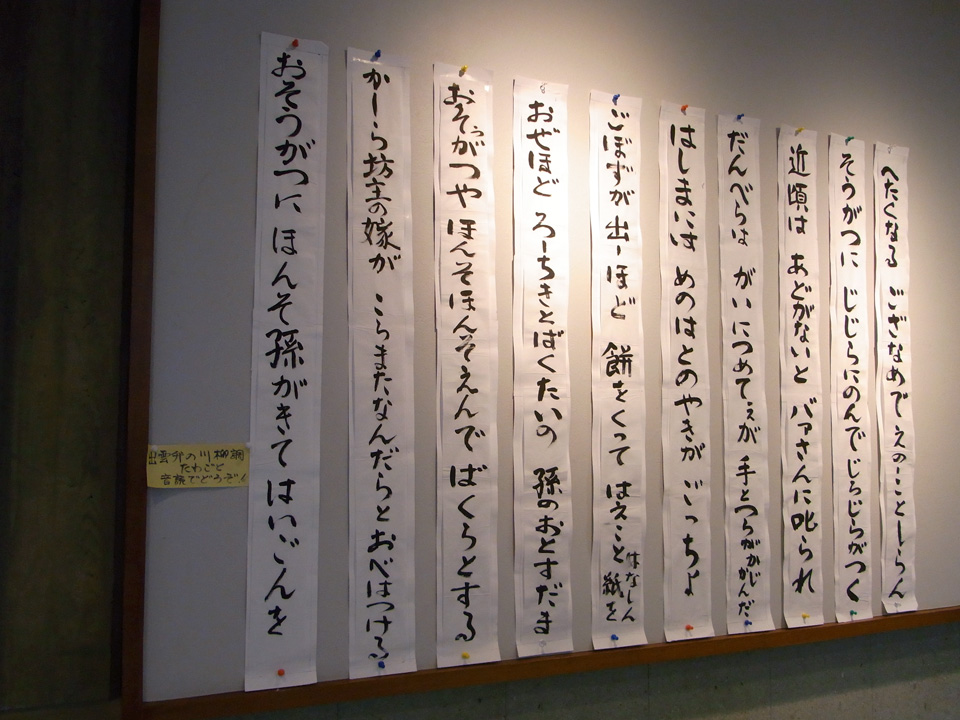 へたくなる ござなめで えのーことーらん
そうがつに じじらにのんで じらじらがつく
近頃は あどがないと バアさんに叱られ
だんべらは がいにつめてぇが 手とつらがかじかんだ
はしまには めのはとのやきが ごっちょ
ごぼずが出ーほど 餅をくって はえこと紙を はなしん
おぜほど ろーちきとばくたいの 孫のおとすだま
おそうがつや ほんそほんそえんで ばくらとする
かーら坊主の嫁が こらまたなんだらと おべはつける
おそうがつに ほんそ孫がきて はいごんを
出雲弁の川柳調
たわごと
音読でどうぞ!